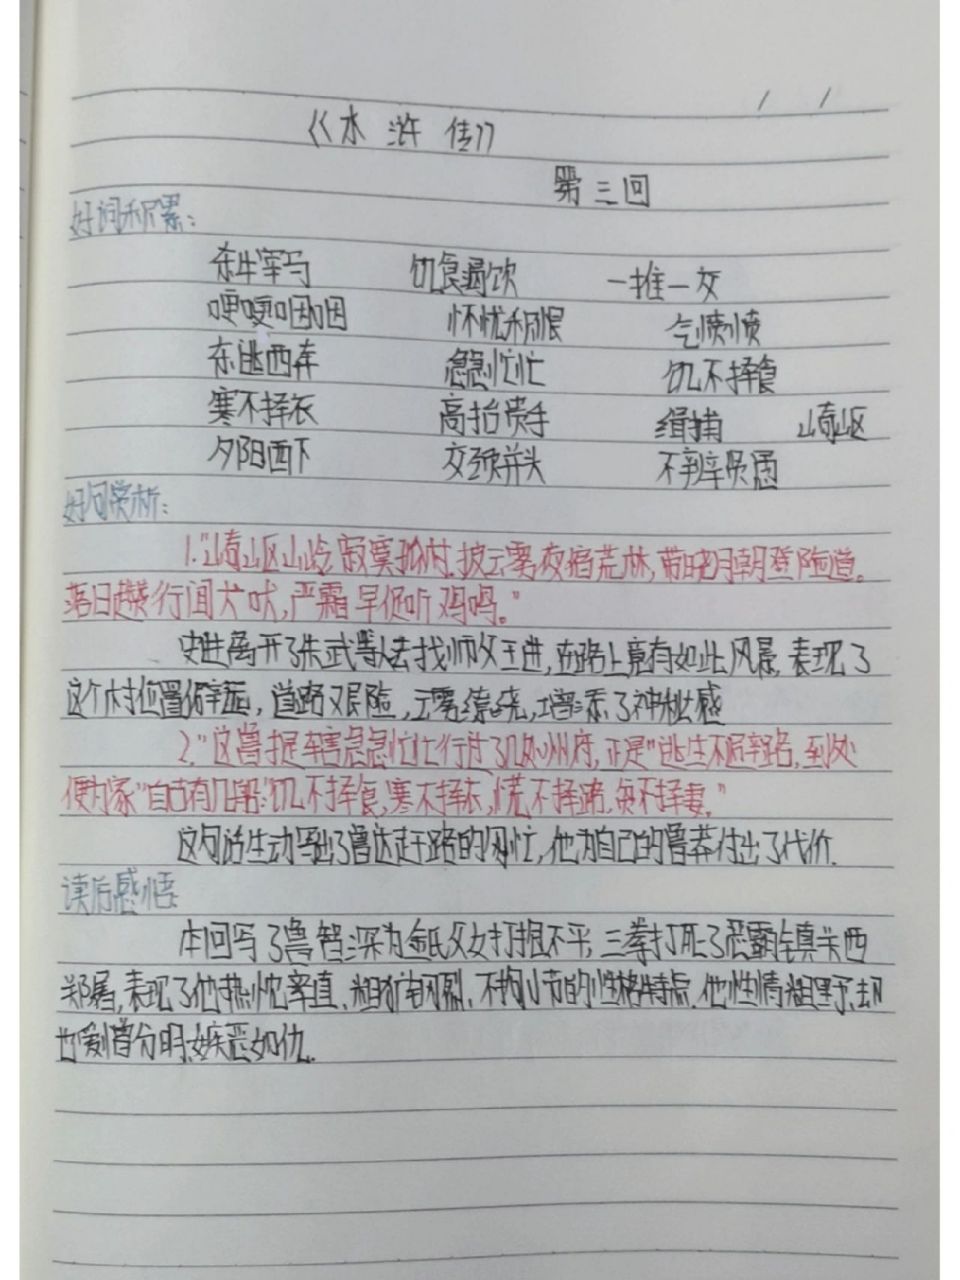 《水浒传》
第三回
好词积累:
杀牛宰马 饥食渴饮 一推一交
哽哽咽咽 怀忧积恨 气愤愤
东逃西奔 急急忙忙 饥不择食
寒不择衣 高抬贵手 缉捕 崎岖
夕阳西下 交颈并头 不辨贤愚
好句赏析:
1."崎岖山岭,寂寞孤村.披云雾夜宿荒林,带晓月朝登险道。
落日趱行闻犬吠,严霜早促听鸡鸣。"
史进离开了朱武等人去找师父王进,在路上竟有如此风景,表现了
这个村位置偏僻,道路艰险,云雾缭绕,增添了神秘感
2."这鲁提辖急急忙忙行过了几处州府,正是"逃生不辨路,到处
便为家"自古有几般:饥不择食,寒不择衣,慌不择路,贫不择妻。"
这句话生动写出了鲁达赶路的匆忙,他为自己的鲁莽付出了代价.
读后感悟:
本回写了鲁智深为金氏父女打抱不平,三拳打死了恶霸镇关西
郑屠,表现了他热忱率直、粗犷刚烈、不拘小节的性格特点.他性情粗野,却
也爱憎分明,嫉恶如仇.